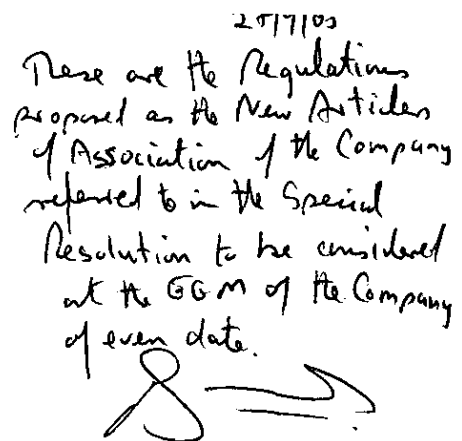 28/7/03
These are the Regulations
proposed as the New Articles
of Association of the Company
referred to in the Special
Resolution to be considered
at the EGM of the Company
of even date.